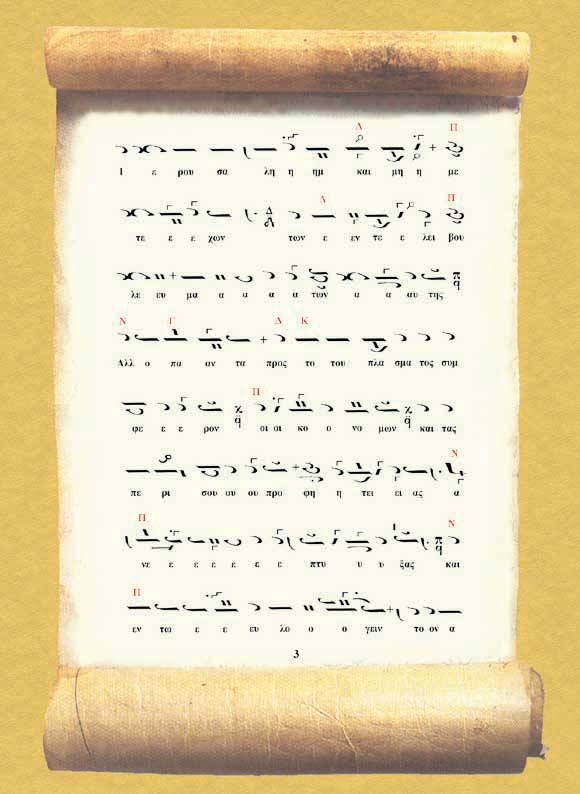 Δ Π
Ι ε ρου σα λη η ημ και μη η με
Δ Π
τε ε ε χων των ε εν τε ε λει βου
λε ευ μα α α α α των α α αυ της
Ν Γ Δ Κ
Αλλ ο πα αν τα προς το του πλα σμα τος συμ
Π
φε ε ε ρον οι οι κο ο νο μων και τας
Ν
πε ρι σου ου ου προ φη η τει ει ας α
Π Ν
νε ε ε ε ε ε ε πτυ υ υ ξας και
Π
εν τω ε ε ευ λο ο ο γειν το ον α
3